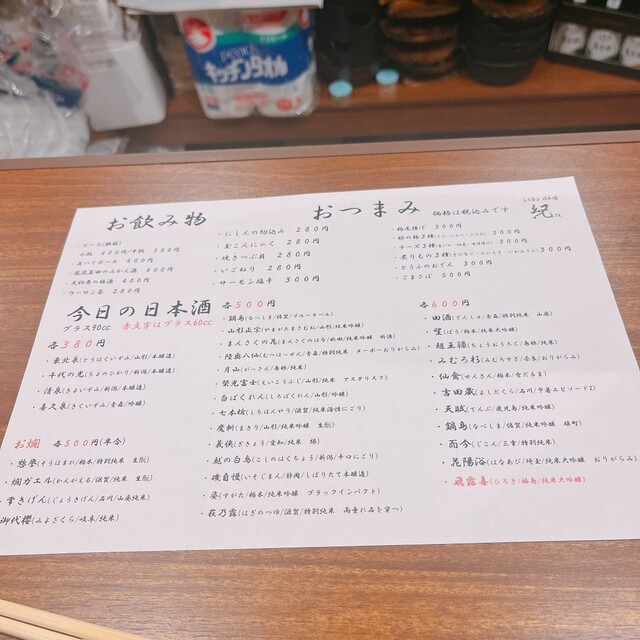 キッチンタオル
お飲み物
・ビール(瓶)
小瓶 450円/中瓶 580円
400円
400円
・黒糖梅酒 400円
・ウーロン茶 280円
おつまみ 価格は税込みです
紀
・にしんの切込み 280円
・玉こんにゃく 280円
・焼きつぶ貝 280円
・いごねり 280円
・サーモン塩辛 300円
・栃尾揚げ 300円
300円
・チーズ3種 300円
・炙りもの3種 300円
・とうふのおでん 300円
・ごまさば 500円
今日の日本酒
グラス90cc 赤文字はグラス60cc
各380円
・東北泉(とうほくいずみ/山形/本醸造)
・千代の光(ちよのひかり/新潟/本醸造)
・清泉(きよいずみ/新潟/本醸造)
・喜久泉(きくいずみ/青森/吟醸)
お燗 各500円(半合)
・惣誉(そうほまれ/栃木/特別純米 生酛)
・燗ガエル(かんがえる/滋賀/純米 生酛)
・常きげん(じょうきげん/石川/山廃純米)
御代櫻(みよざくら/岐阜/純米)
各500円
・鍋島(なべしま/佐賀/ブルーラベル)
・山形正宗(やまがたまさむね/山形/純米吟醸)
・まんさくの花(まんさくのはな/秋田/純米吟醸 新酒)
・陸奥八仙(むつはっせん/青森/特別純米 ヌーボーおりがらみ)
・月山(がっさん/島根/純米)
・栄光冨士(えいこうふじ/山形/純米 アスタリスク)
・白ばくれん(しろばくれん/山形/吟醸)
・七本槍(しちほんやり/滋賀/純米活性にごり)
・廣新
・義侠(ぎきょう/愛知/純米 縁)
・越の白鳥(こしのはくちょう/新潟/辛口にごり)
・磯自慢(いそじまん/静岡/しぼりたて本醸造)
・姿(すがた/栃木/純米吟醸 ブラックインパクト)
・萩乃露(はぎのつゆ/滋賀/特別純米 雨垂れ石を穿つ)
各600円
・田酒(でんしゅ/青森/特別純米 山廃)
・望(ぼう/栃木/純米大吟醸)
・超王禄(ちょうおうろく/島根/純米)
・みむろ杉(みむろすぎ/奈良/おりがらみ)
・仙禽(せんきん/栃木/雪だるま)
・吉田蔵(よしだくら/石川/巾着エピソード2)
・天賦(てんぶ/鹿児島/純米吟醸)
・鍋島(なべしま/佐賀/純米吟醸 雄町)
・而今(じこん/三重/特別純米)
・花陽浴(はなあび/埼玉/純米大吟醸 おりがらみ)
・飛露喜(ひろき/福島/純米大吟醸)